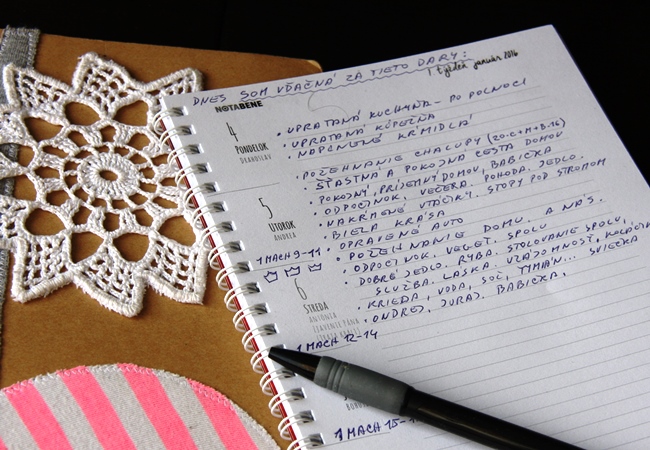 DNES SOM VĎAČNÁ ZA TIETO DARY:
NOTABENE
1 týždeň január 2016
4
PONDELOK
DRAHOSLAV
• UPRATANÁ KUCHYŇA - PO POLNOCI
• UPRATANÁ KÚPEĽŇA
• NAPLNENÉ KŔMIDLÁ
5
UTOROK
ANDREA
• POŽEHNANIE CHALUPY (20-C+M+B-16)
• ŠŤASTNÁ A POKOJNÁ CESTA DOMOV
• POKOJNÝ, PRÍJEMNÝ DOMOV, BABIČKA
• ODPOČINOK, VEČERA, POHODA, JEDLO.
• NAKŔMENÉ VTÁČIKY. STOPY POD STROMOM
• BIELA KRÁSA
• OPRAVENÉ AUTO
1 MACH 9-11
6
STREDA
ANTÓNIA
• POŽEHNANIE DOMU. A NÁS.
• ODPOČINOK, VEGET. SPOLU
• DOBRÉ JEDLO. RYBA. STOLOVANIE SPOLU,
SLUŽBA. LÁSKA. VZÁJOMNOSŤ, KOLÁČIKY
• KRIEDA, VODA, SOĽ, TYMIÁN... SVIEČKA
• ONDREJ, JURAJ, BABIČKA,
1 MACH 12-14
1 MACH 15-1